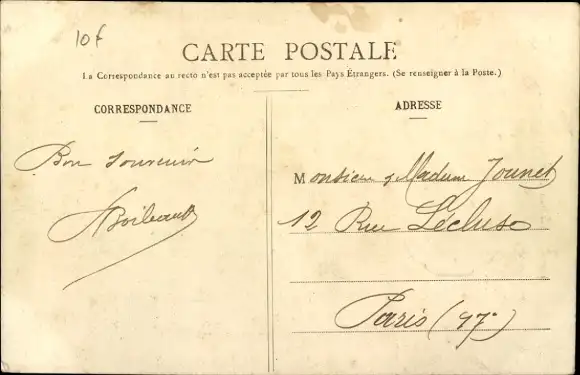 10f
CARTE POSTALE
La Correspondance au recto n'est pas acceptée par tous les Pays Étrangers. (Se renseigner à la Poste.)
CORRESPONDANCE
ADRESSE
Bon souvenir
ABoileault
Monsieur & Madame Jounet
12 Rue Lécluse
Paris (17e)